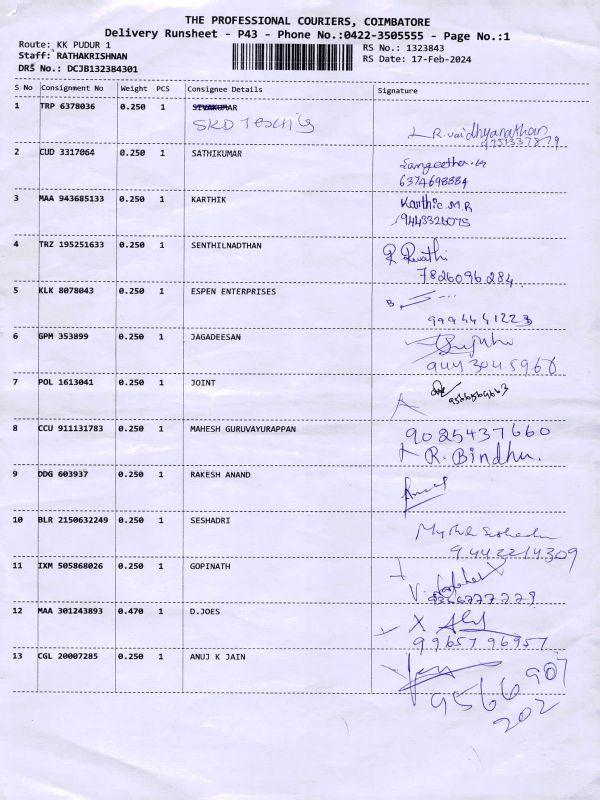 THE PROFESSIONAL COURIERS, COIMBATORE
Delivery Runsheet - P43 - Phone No.:0422-3505555 - Page No.:1
Route: KK PUDUR 1
RS No.: 1323843
Staff: RATHAKRISHNAN
RS Date: 17-Feb-2024
DRS No.: DCJB132384301
S No Consignment No Weight PCS Consignee Details Signature
1 TRP 6378036 0.250 1 SIVAKUMAR
R. Vaidhyanathan
2 CUD 3317064 0.250 1 SATHIKUMAR
6374698884
3 MAA 943685133 0.250 1 KARTHIK Karthic M R
9443326075
4 TRZ 195251633 0.250 1 SENTHILNADTHAN
7826096284
5 KLK 8078043 0.250 1 ESPEN ENTERPRISES
9994441223
6 GPM 353899 0.250 1 JAGADEESAN
9443045960
7 POL 1613041 0.250 1 JOINT
8 CCU 911131783 0.250 1 MAHESH GURUVAYURAPPAN 9025437660
R. Bindhu.
9 DDG 603937 0.250 1 RAKESH ANAND
10 BLR 2150632249 0.250 1 SESHADRI
9442214309
11 IXM 505868026 0.250 1 GOPINATH
12 MAA 301243893 0.470 1 D.JOES
9965796957
13 CGL 20007285 0.250 1 ANUJ K JAIN
9566907
202